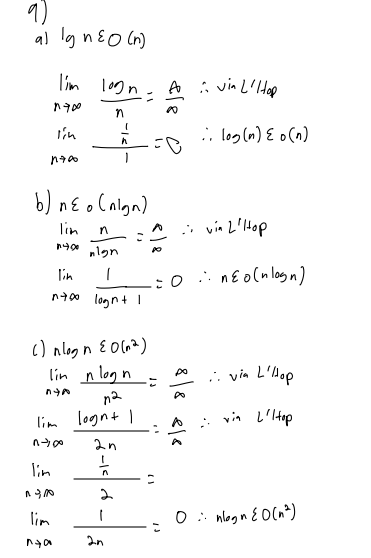 9)
a) lg n ε O(n)
lim n→∞ log n / n = ∞/∞ ∴ via L'Hop
lim n→∞ 1/n / 1 = 0 ∴ log(n) ε o(n)
b) n ε o(nlgn)
lim n→∞ n / nlgn = ∞/∞ ∴ via L'Hop
lim n→∞ 1 / logn + 1 = 0 ∴ n ε o(n logn)
c) nlog n ε O(n²)
lim n→∞ n log n / n² = ∞/∞ ∴ via L'Hop
lim n→∞ logn + 1 / 2n = ∞/∞ ∴ via L'Hop
lim n→∞ 1/n / 2 =
lim n→∞ 1 / 2n = 0 ∴ nlog n ε O(n²)